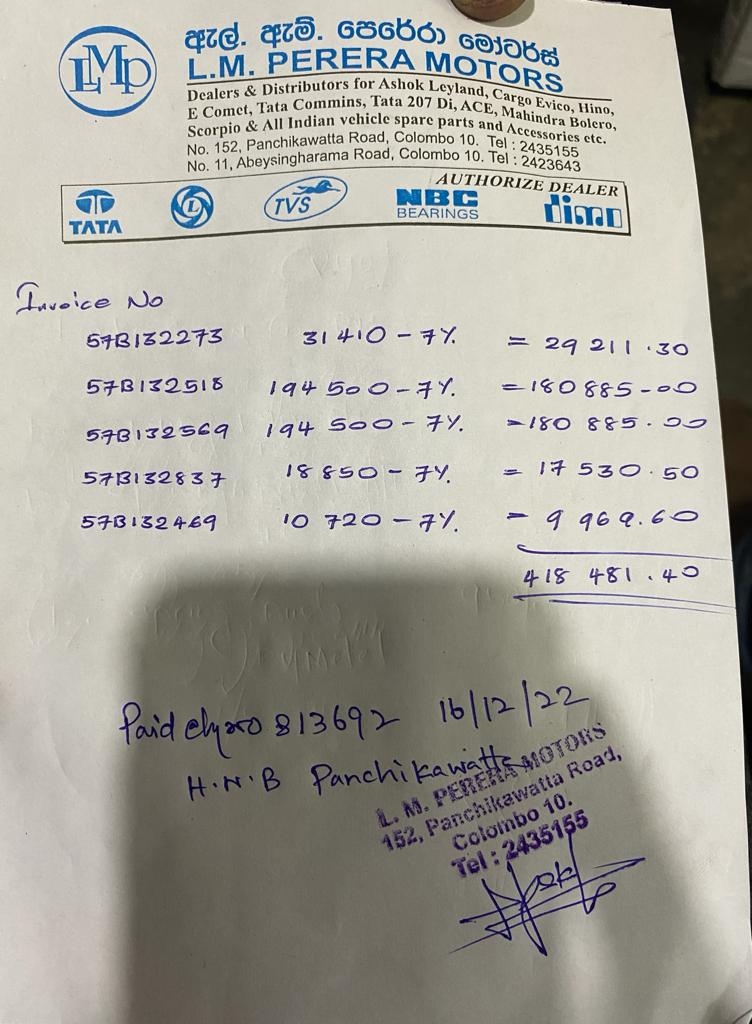 LMP
ඇල්. ඇම්. පෙරේරා මෝටර්ස්
L.M. PERERA MOTORS
Dealers & Distributors for Ashok Leyland, Cargo Evico, Hino,
E Comet, Tata Commins, Tata 207 Di, ACE, Mahindra Bolero,
Scorpio & All Indian vehicle spare parts and Accessories etc.
No. 152, Panchikawatta Road, Colombo 10. Tel : 2435155
No. 11, Abeysingharama Road, Colombo 10. Tel : 2423643
AUTHORIZE DEALER
TATA L TVS NBC BEARINGS dimo
Invoice No
57B132273 31410 - 7% = 29 211.30
57B132518 194 500 - 7% = 180 885-00
57B132569 194 500 - 7% = 180 885.00
57B132837 18 850 - 7% = 17 530.50
57B132469 10 720 - 7% = 9 969.60
418 481.40
Paid 813692 16/12/22
H.N.B Panchikawatta
L. M. PERERA MOTORS
152, Panchikawatta Road,
Colombo 10.
Tel : 2435155